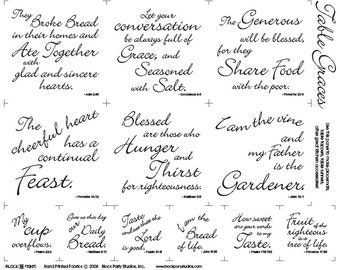 They
Broke Bread
in their homes and
Ate Together
with
glad and sincere
hearts.
- Acts 2:46
Let your
conversation
be always full of
Grace, and
Seasoned
with Salt.
- Colossians 4:6
The Generous
will be blessed,
for they
Share Food
with the poor.
- Proverbs 22:9
Table Graces
The
cheerful heart
has a
continual
Feast.
- Proverbs 15:15
Blessed
are those who
Hunger
and
Thirst
for righteousness.
- Matthew 5:6
I am the vine
and
my Father is
the
Gardener.
- John 15:1
My
cup
overflows.
- Psalm 23:5
Give us this day
our
Daily
Bread.
- Matthew 6:11
Taste
and see that the
Lord
is good.
- Psalm 34:8
I am the
Bread
of life.
- John 6:35
How sweet
are your words
to my
Taste.
- Psalm 119:103
Fruit
righteous
is a
tree of life.
BLOCK PRINTS Hand Printed Fabrics © 2008 Block Party Studios, Inc. www.blockpartystudios.com